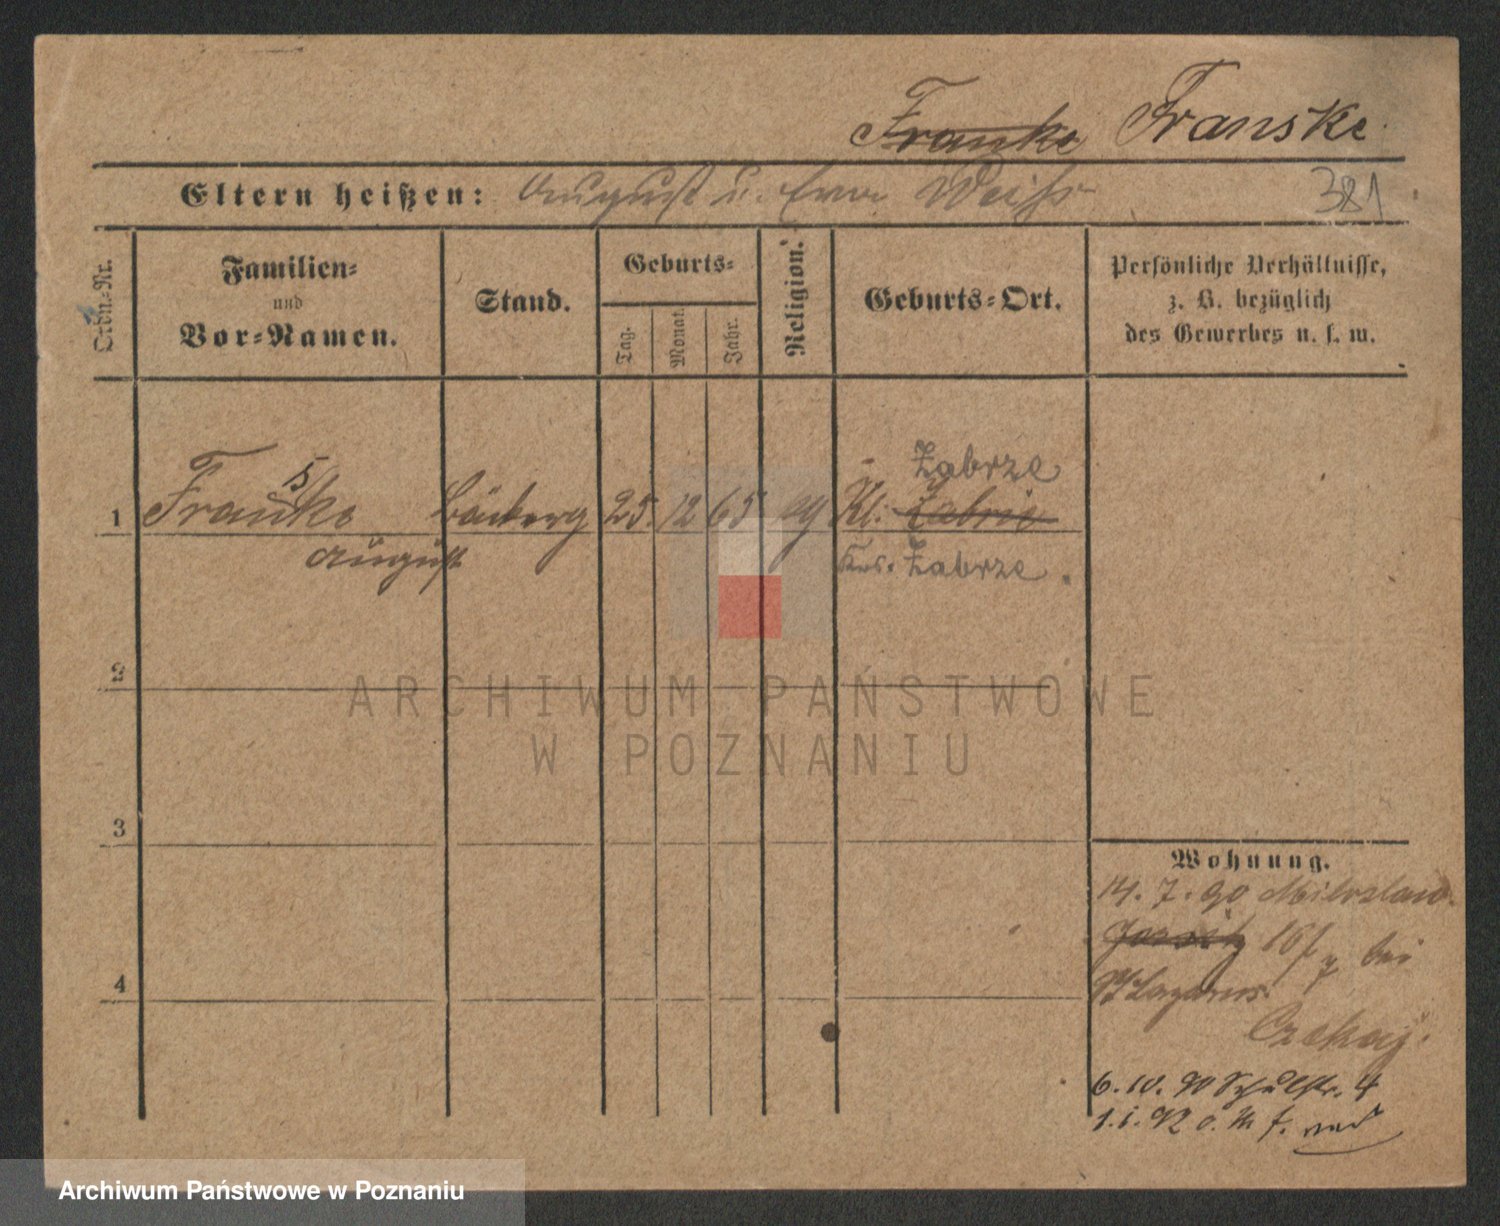 Franke Franske
Eltern heißen: August u. Eva Weiß
381
Ordn.-Nr.
Familien-
und
Vor-Namen.
Stand.
Geburts-
Tag.
Monat.
Jahr.
Religion.
Geburts-Ort.
Persönliche Verhältnisse,
z. B. bezüglich
des Gewerbes u. s. w.
Zabrze
1 Franske Bäckerg 25. 12 65 Kl. Zabrze
August Krs. Zabrze.
2
3
4
Wohnung.
14. 7. 90
Jersitz 16/7 bei
St Lazarus
Czekaj.
6. 10. 90 Schulstr. 4
1. 1. 92
ARCHIWUM PAŃSTWOWE
W POZNANIU
Archiwum Państwowe w Poznaniu